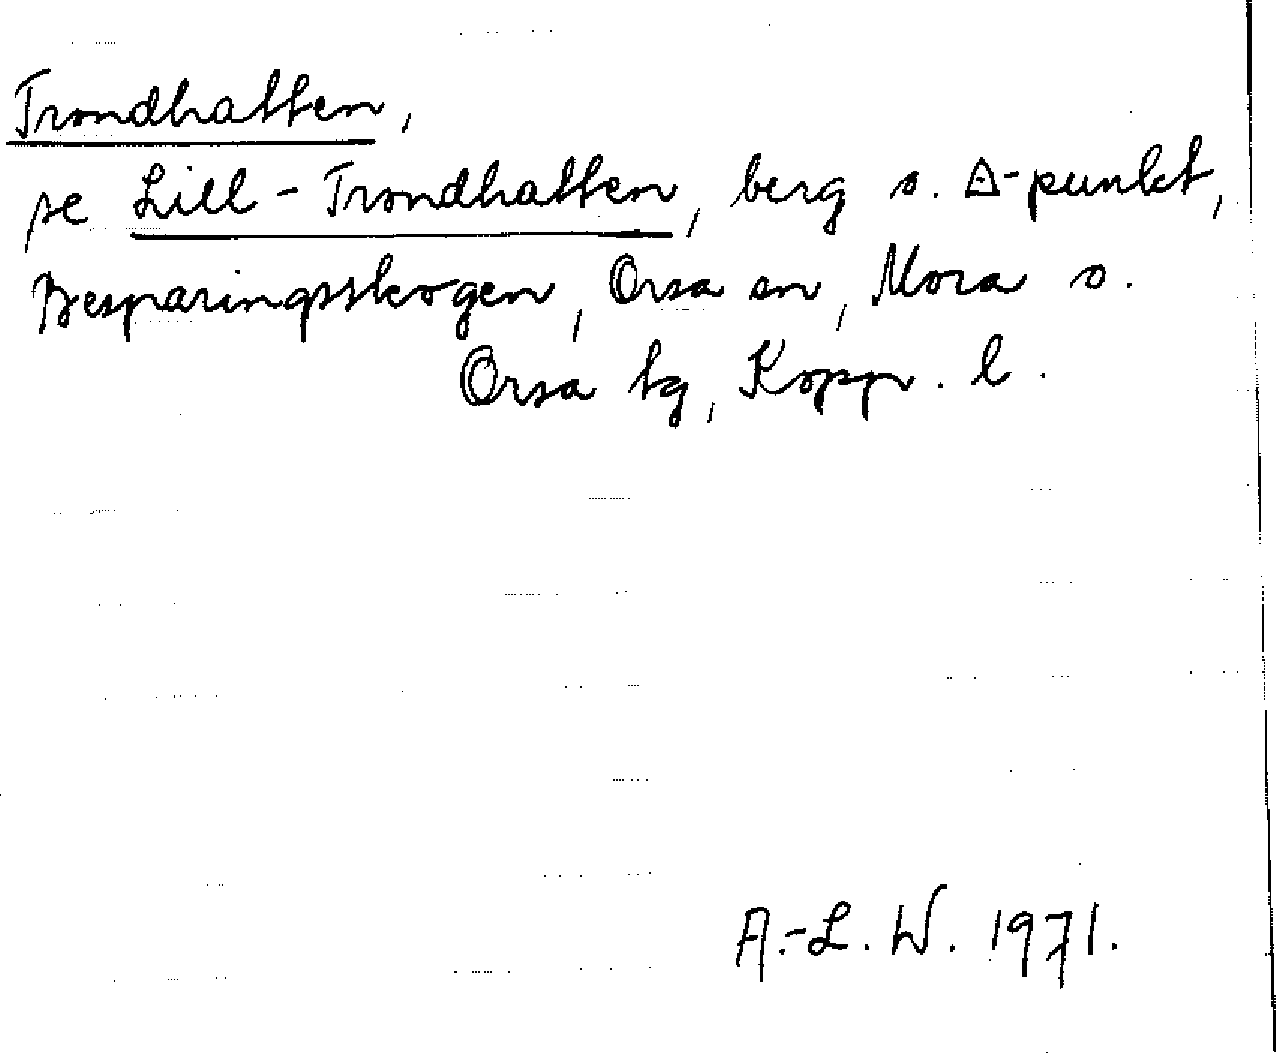 Trondhatten,
se Lill-Trondhatten, berg o. △-punkt,
Besparingsskogen, Orsa sn, Mora o.
Orsa tg, Kopp. l.
A.-L. W. 1971.